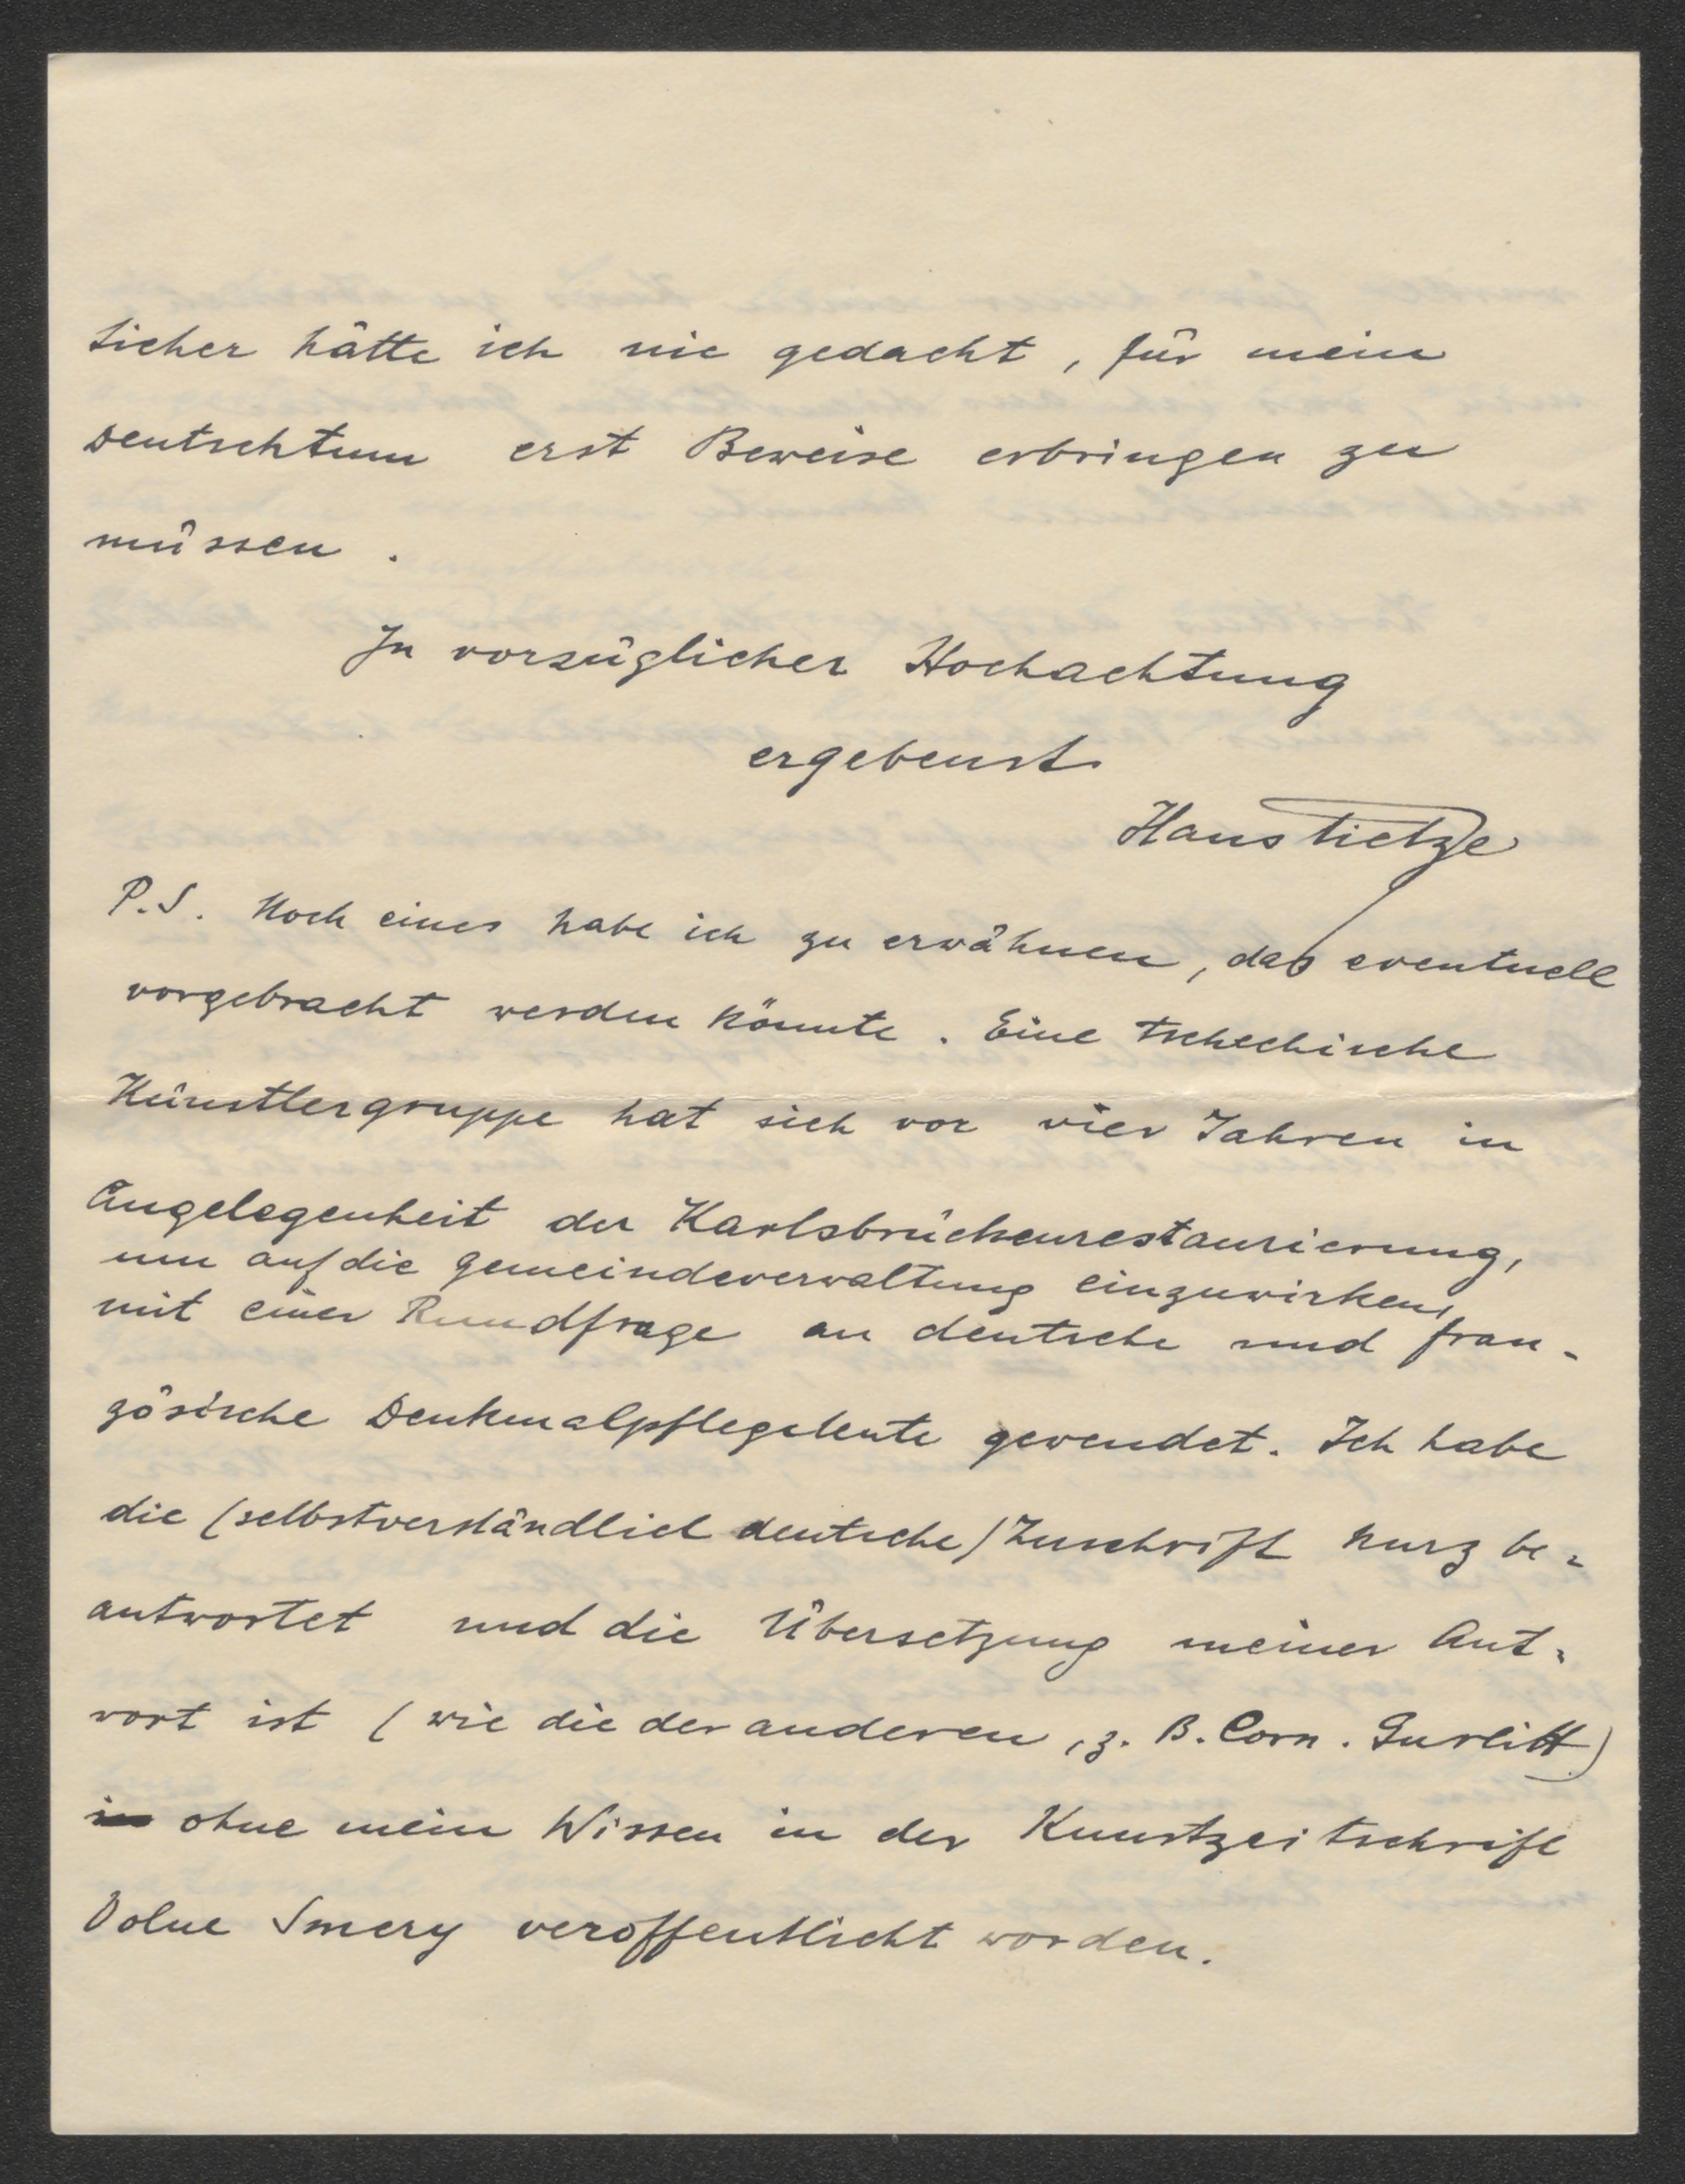 sicher hätte ich nie gedacht, für mein
Deutschtum erst Beweise erbringen zu
müssen.
In vorzüglicher Hochachtung
ergebenst
Hans Tietze
P.S. Noch eines habe ich zu erwähnen, das eventuell
vorgebracht werden könnte. Eine tschechische
Künstlergruppe hat sich vor vier Jahren in
Angelegenheit der Karlsbrückenrestaurierung,
um auf die Gemeindeverwaltung einzuwirken,
mit einer Rundfrage an deutsche und fran-
zösische Denkmalpflegeleute gewendet. Ich habe
die (selbstverständlich deutsche) Zuschrift kurz be-
antwortet und die Übersetzung meiner Ant-
wort ist (wie die der anderen, z. B. Corn. Gurlitt)
in ohne mein Wissen in der Kunstzeitschrift
Volne Smery veröffentlicht worden.